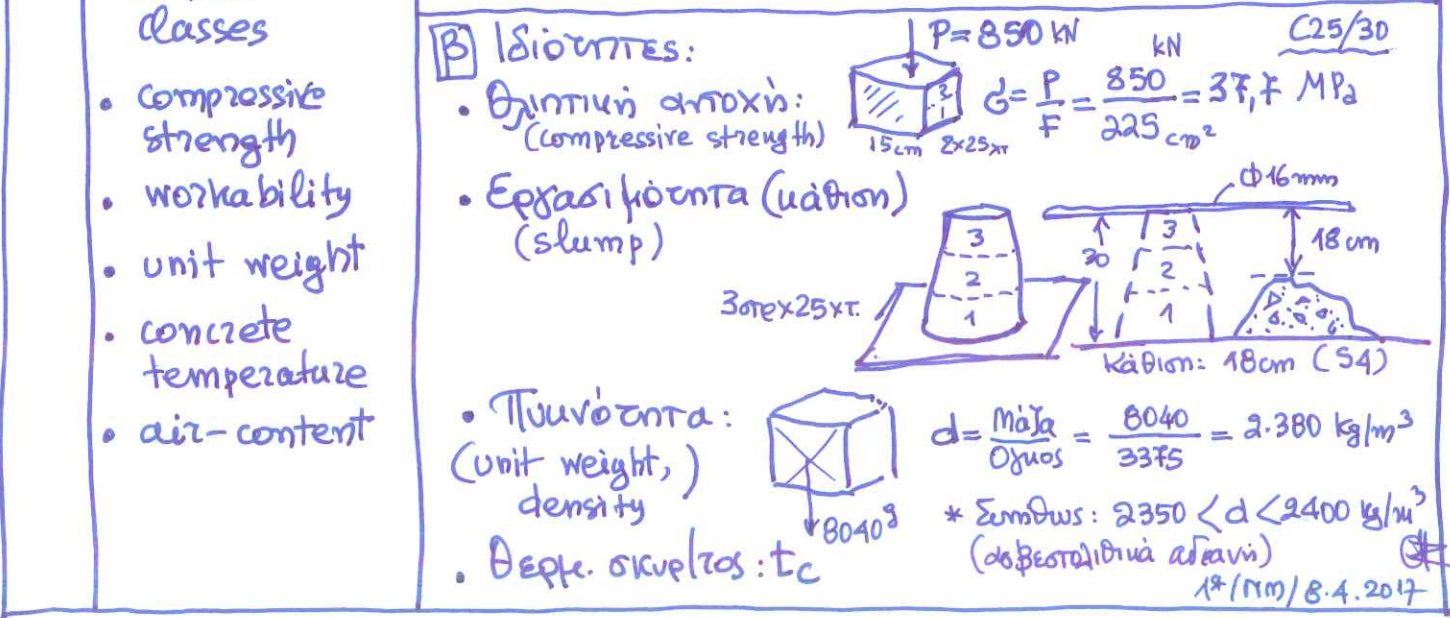 classes
• compressive
strength
• workability
• unit weight
• concrete
temperature
• air-content
Β Ιδιότητες:
• Θλιπτική αντοχή:
(compressive strength)
P=850 kN
3
1
15cm 2×25χτ
C25/30
σ = P/F = 850 kN/225 cm² = 37,7 MPa
• Εργασιμότητα (κάθιση)
(slump)
3στρ×25χτ.
3
2
1
Φ16mm
30
3
2
1
18cm
Κάθιση: 18cm (S4)
• Πυκνότητα:
(unit weight,)
density
8040g
d = Μάζα/Όγκος = 8040/3375 = 2.380 kg/m³
* Συνήθως: 2350 < d < 2400 kg/m³
(ασβεστολιθικά αδρανή)
• Θερμ. σκυρ/τος: tc
1*/ΝΜ/8.4.2017